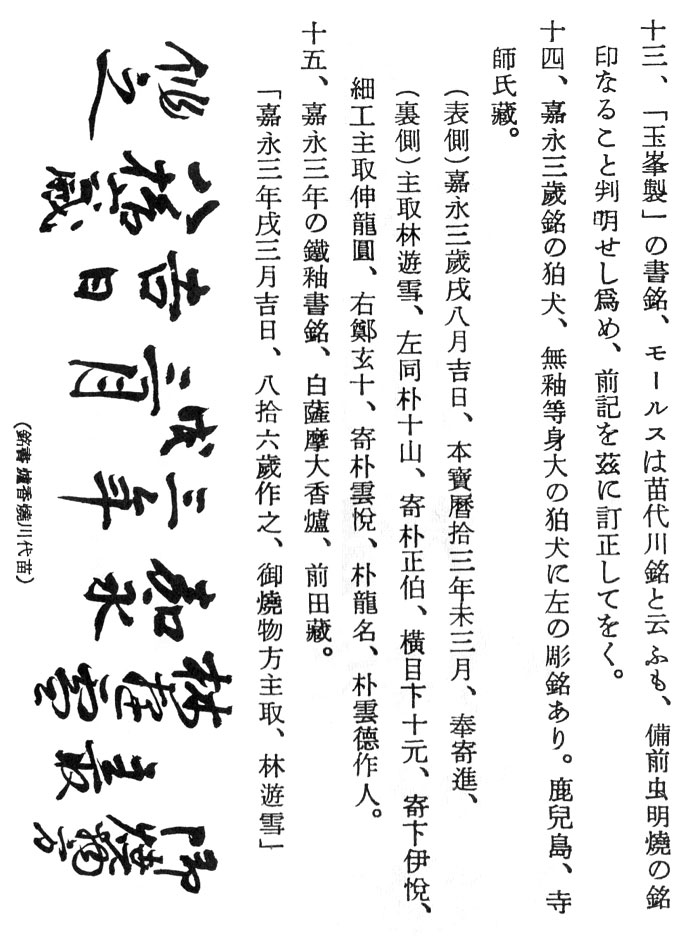 十三、「玉峯製」の書銘、モールスは苗代川銘と云ふも、備前虫明燒の銘
印なること判明せし爲め、前記を茲に訂正してをく。
十四、嘉永三歲銘の狛犬、無釉等身大の狛犬に左の彫銘あり。鹿兒島、寺
師氏藏。
(表側)嘉永三歲戌八月吉日、本寶曆拾三年未三月、奉寄進、
(裏側)主取林遊雪、左同朴十山、寄朴正伯、橫目卞十元、寄卞伊悅、
細工主取伸龍圓、右鄭玄十、寄朴雲悅、朴龍名、朴雲德作人。
十五、嘉永三年の鐵釉書銘、白薩摩大香爐、前田藏。
「嘉永三年戌三月吉日、八拾六歲作之、御燒物方主取、林遊雪」
御燒物方
主取
林遊雪
嘉永
三年
戌三月
吉日
八拾六歲
作之
(苗代川燒香爐書銘)